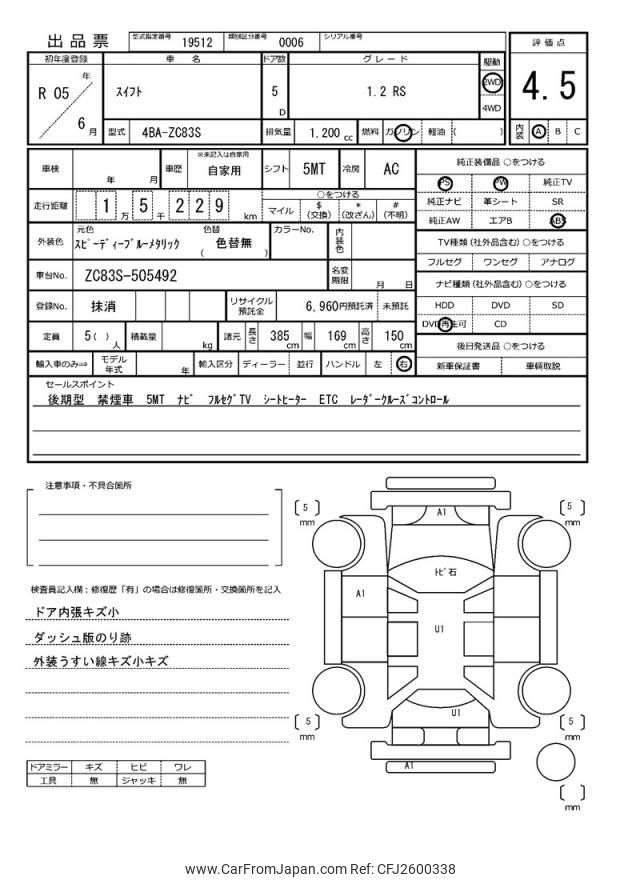 出品票 型式指定番号 19512 類別区分番号 0006 シリアル番号
初年度登録 車名 ドア数 グレード 駆動 評価点
R 05 年 6 月 スイフト 5 D 1.2 RS 2WD 4WD 4.5
型式 4BA-ZC83S 排気量 1,200 cc 燃料 ガソリン 軽油 ( ) 内装 A B C
車検 年 月 車歴 ※未記入は自家用 自家用 シフト 5MT 冷房 AC 純正装備品 ○をつける
PS PW 純正TV
走行距離 1 万 5 千 2 2 9 km ○をつける
マイル $ (交換) * (改ざん) # (不明)
純正ナビ 革シート SR
純正AW エアB ABS
外装色 元色 スピーディーブルーメタリック 色替 ( 色替無 ) カラーNo. 内装色
TV種類 (社外品含む) ○をつける
フルセグ ワンセグ アナログ
車台No. ZC83S-505492 名変期限 月 日
ナビ種類 (社外品含む) ○をつける
登録No. 抹消 リサイクル預託金 6,960円預託済 未預託
HDD DVD SD
DVD再生可 CD
定員 5 ( ) 人 積載量 kg 諸元 長さ 385 cm 幅 169 cm 高さ 150 cm
後日発送品 ○をつける
輸入車のみ⇒ モデル年式 年 輸入区分 ディーラー 並行 ハンドル 左 右
新車保証書 車輌取説
セールスポイント
後期型 禁煙車 5MT ナビ フルセグTV シートヒーター ETC レーダークルーズコントロール
注意事項・不具合箇所
検査員記入欄：修復歴「有」の場合は修復箇所・交換箇所を記入
ドア内張キズ小
ダッシュ版のり跡
外装うすい線キズ小キズ
ドアミラー キズ ヒビ ワレ
工具 無 ジャッキ 無
5 mm
A1
5 mm
トビ石
A1
U1
U1
5 mm
A1
5 mm
mm
www.CarFromJapan.com Ref: CFJ2600338